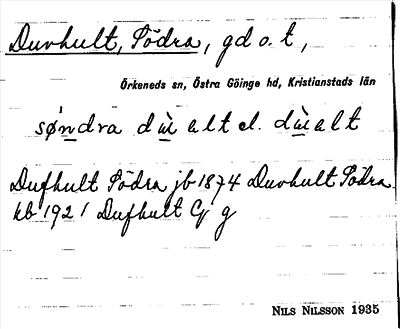 Duvhult, Södra, gd o. t,
Örkeneds sn, Östra Göinge hd, Kristianstads län
søndra dù alt el. dùalt
Dufhult Södra jb 1874 Duvhult Södra
kb 1921 Dufhult G g
NILS NILSSON 1935